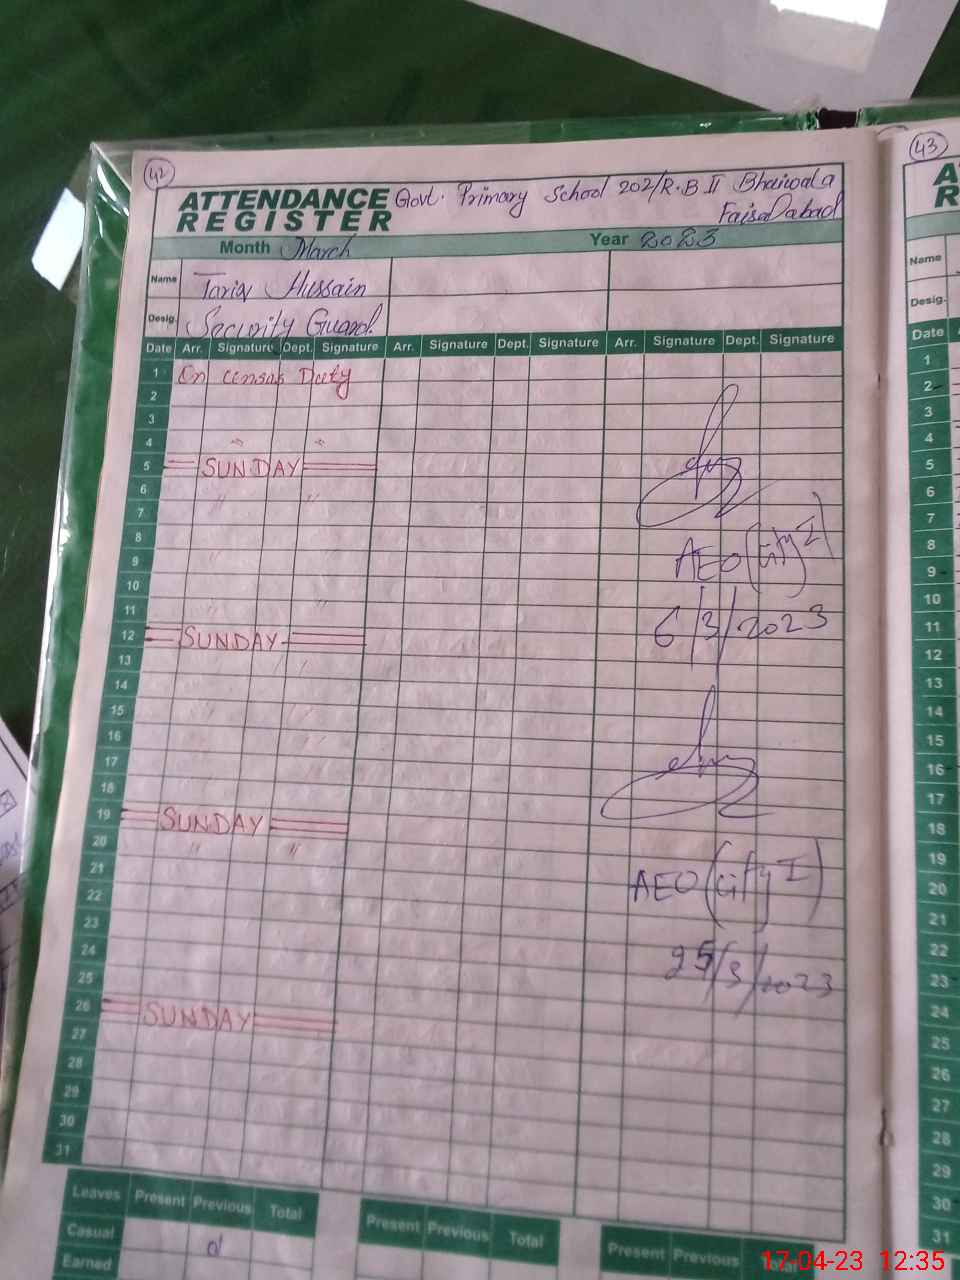 42
ATTENDANCE REGISTER Govt. Primary School 202/R.B II Bhaiwala
Faisalabad
Month March Year 2023
Name Tariq Hussain
Desig. Security Guard
Date Arr. Signature Dept. Signature Arr. Signature Dept. Signature Arr. Signature Dept. Signature
1 On censas Duty
2
3
4 " "
5 SUNDAY
6 " "
7
8 AEO (City I)
9 "
10
11 " " 6/3/2023
12 SUNDAY
13 " "
14
15 " "
16 " "
17
18
19 SUNDAY
20 " "
21 AEO (City I)
22
23
24 25/3/2023
25
26 SUNDAY
27
28
29
30
31
Leaves Present Previous Total Present Previous Total Present Previous Total
Casual
Earned
43
A
R
Name
Desig.
Date
1
2
3
4
5
6
7
8
9
10
11
12
13
14
15
16
17
18
19
20
21
22
23
24
25
26
27
28
29
30
31
17-04-23 12:35